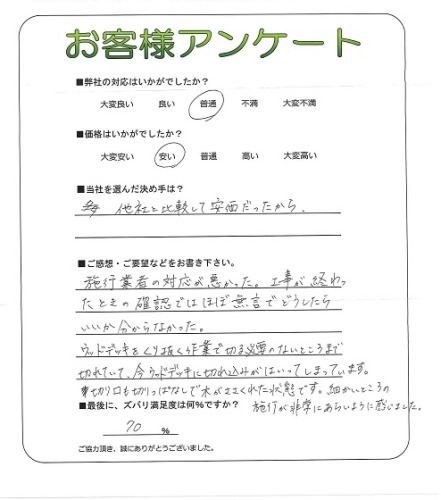 お客様アンケート
■弊社の対応はいかがでしたか？
大変良い　良い　普通　不満　大変不満
■価格はいかがでしたか？
大変安い　安い　普通　高い　大変高い
■当社を選んだ決め手は？
他社と比較して安価だったから。
■ご感想・ご要望などをお書き下さい。
施行業者の対応が悪かった。工事が終わっ
たときの確認ではほぼ無言でどうしたら
いいか分からなかった。
ウッドデッキをくり抜く作業で切る必要のないところまで
切れていて、今ウッドデッキに切れ込みがはいってしまっています。
切り口も切りっぱなしで木がささくれた状態です。細かいところの
施行が非常にあらいように感じました。
■最後に、ズバリ満足度は何％ですか？
70 ％
ご協力頂き、誠にありがとうございました。